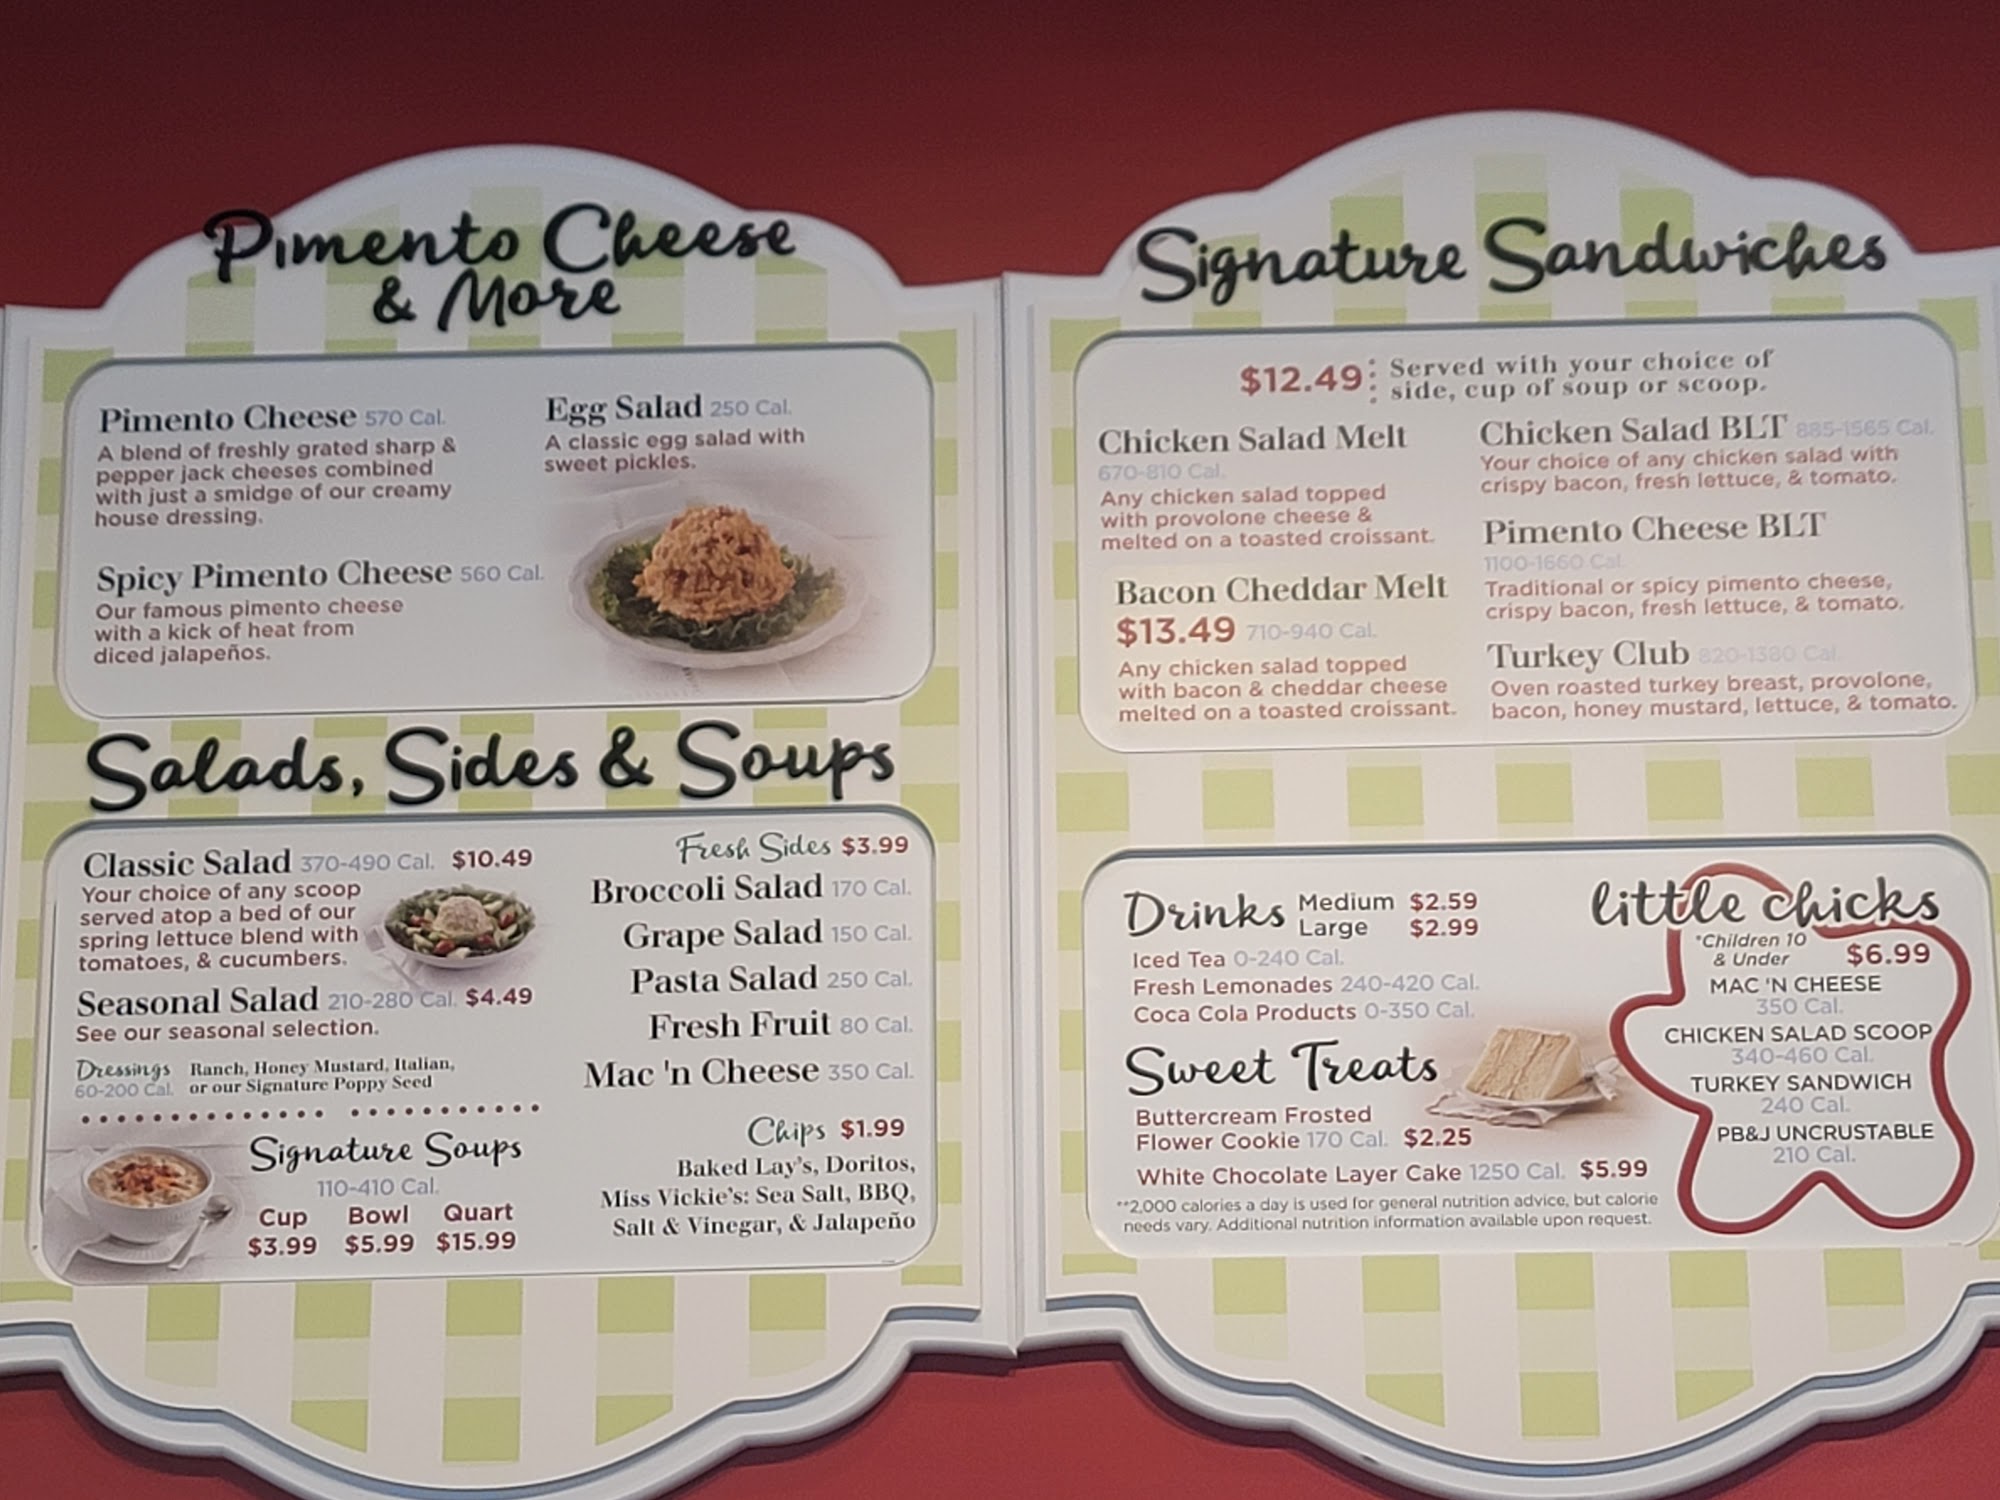 Pimento Cheese
& More
Pimento Cheese 570 Cal.
A blend of freshly grated sharp &
pepper jack cheeses combined
with just a smidge of our creamy
house dressing.
Spicy Pimento Cheese 560 Cal.
Our famous pimento cheese
with a kick of heat from
diced jalapeños.
Egg Salad 250 Cal.
A classic egg salad with
sweet pickles.
Salads, Sides & Soups
Classic Salad 370-490 Cal. $10.49
Your choice of any scoop
served atop a bed of our
spring lettuce blend with
tomatoes, & cucumbers.
Seasonal Salad 210-280 Cal. $4.49
See our seasonal selection.
Dressings Ranch, Honey Mustard, Italian,
60-200 Cal. or our Signature Poppy Seed
Signature Soups
110-410 Cal.
Cup Bowl Quart
$3.99 $5.99 $15.99
Fresh Sides $3.99
Broccoli Salad 170 Cal.
Grape Salad 150 Cal.
Pasta Salad 250 Cal.
Fresh Fruit 80 Cal.
Mac 'n Cheese 350 Cal.
Chips $1.99
Baked Lay's, Doritos,
Miss Vickie's: Sea Salt, BBQ,
Salt & Vinegar, & Jalapeño
Signature Sandwiches
$12.49 Served with your choice of
side, cup of soup or scoop.
Chicken Salad Melt
670-810 Cal.
Any chicken salad topped
with provolone cheese &
melted on a toasted croissant.
Bacon Cheddar Melt
$13.49 710-940 Cal.
Any chicken salad topped
with bacon & cheddar cheese
melted on a toasted croissant.
Chicken Salad BLT 885-1565 Cal.
Your choice of any chicken salad with
crispy bacon, fresh lettuce, & tomato.
Pimento Cheese BLT
1100-1660 Cal.
Traditional or spicy pimento cheese,
crispy bacon, fresh lettuce, & tomato.
Turkey Club 820-1380 Cal.
Oven roasted turkey breast, provolone,
bacon, honey mustard, lettuce, & tomato.
Drinks Medium $2.59
Large $2.99
Iced Tea 0-240 Cal.
Fresh Lemonades 240-420 Cal.
Coca Cola Products 0-350 Cal.
Sweet Treats
Buttercream Frosted
Flower Cookie 170 Cal. $2.25
White Chocolate Layer Cake 1250 Cal. $5.99
**2,000 calories a day is used for general nutrition advice, but calorie
needs vary. Additional nutrition information available upon request.
little chicks
*Children 10
& Under $6.99
MAC 'N CHEESE
350 Cal.
CHICKEN SALAD SCOOP
340-460 Cal.
TURKEY SANDWICH
240 Cal.
PB&J UNCRUSTABLE
210 Cal.